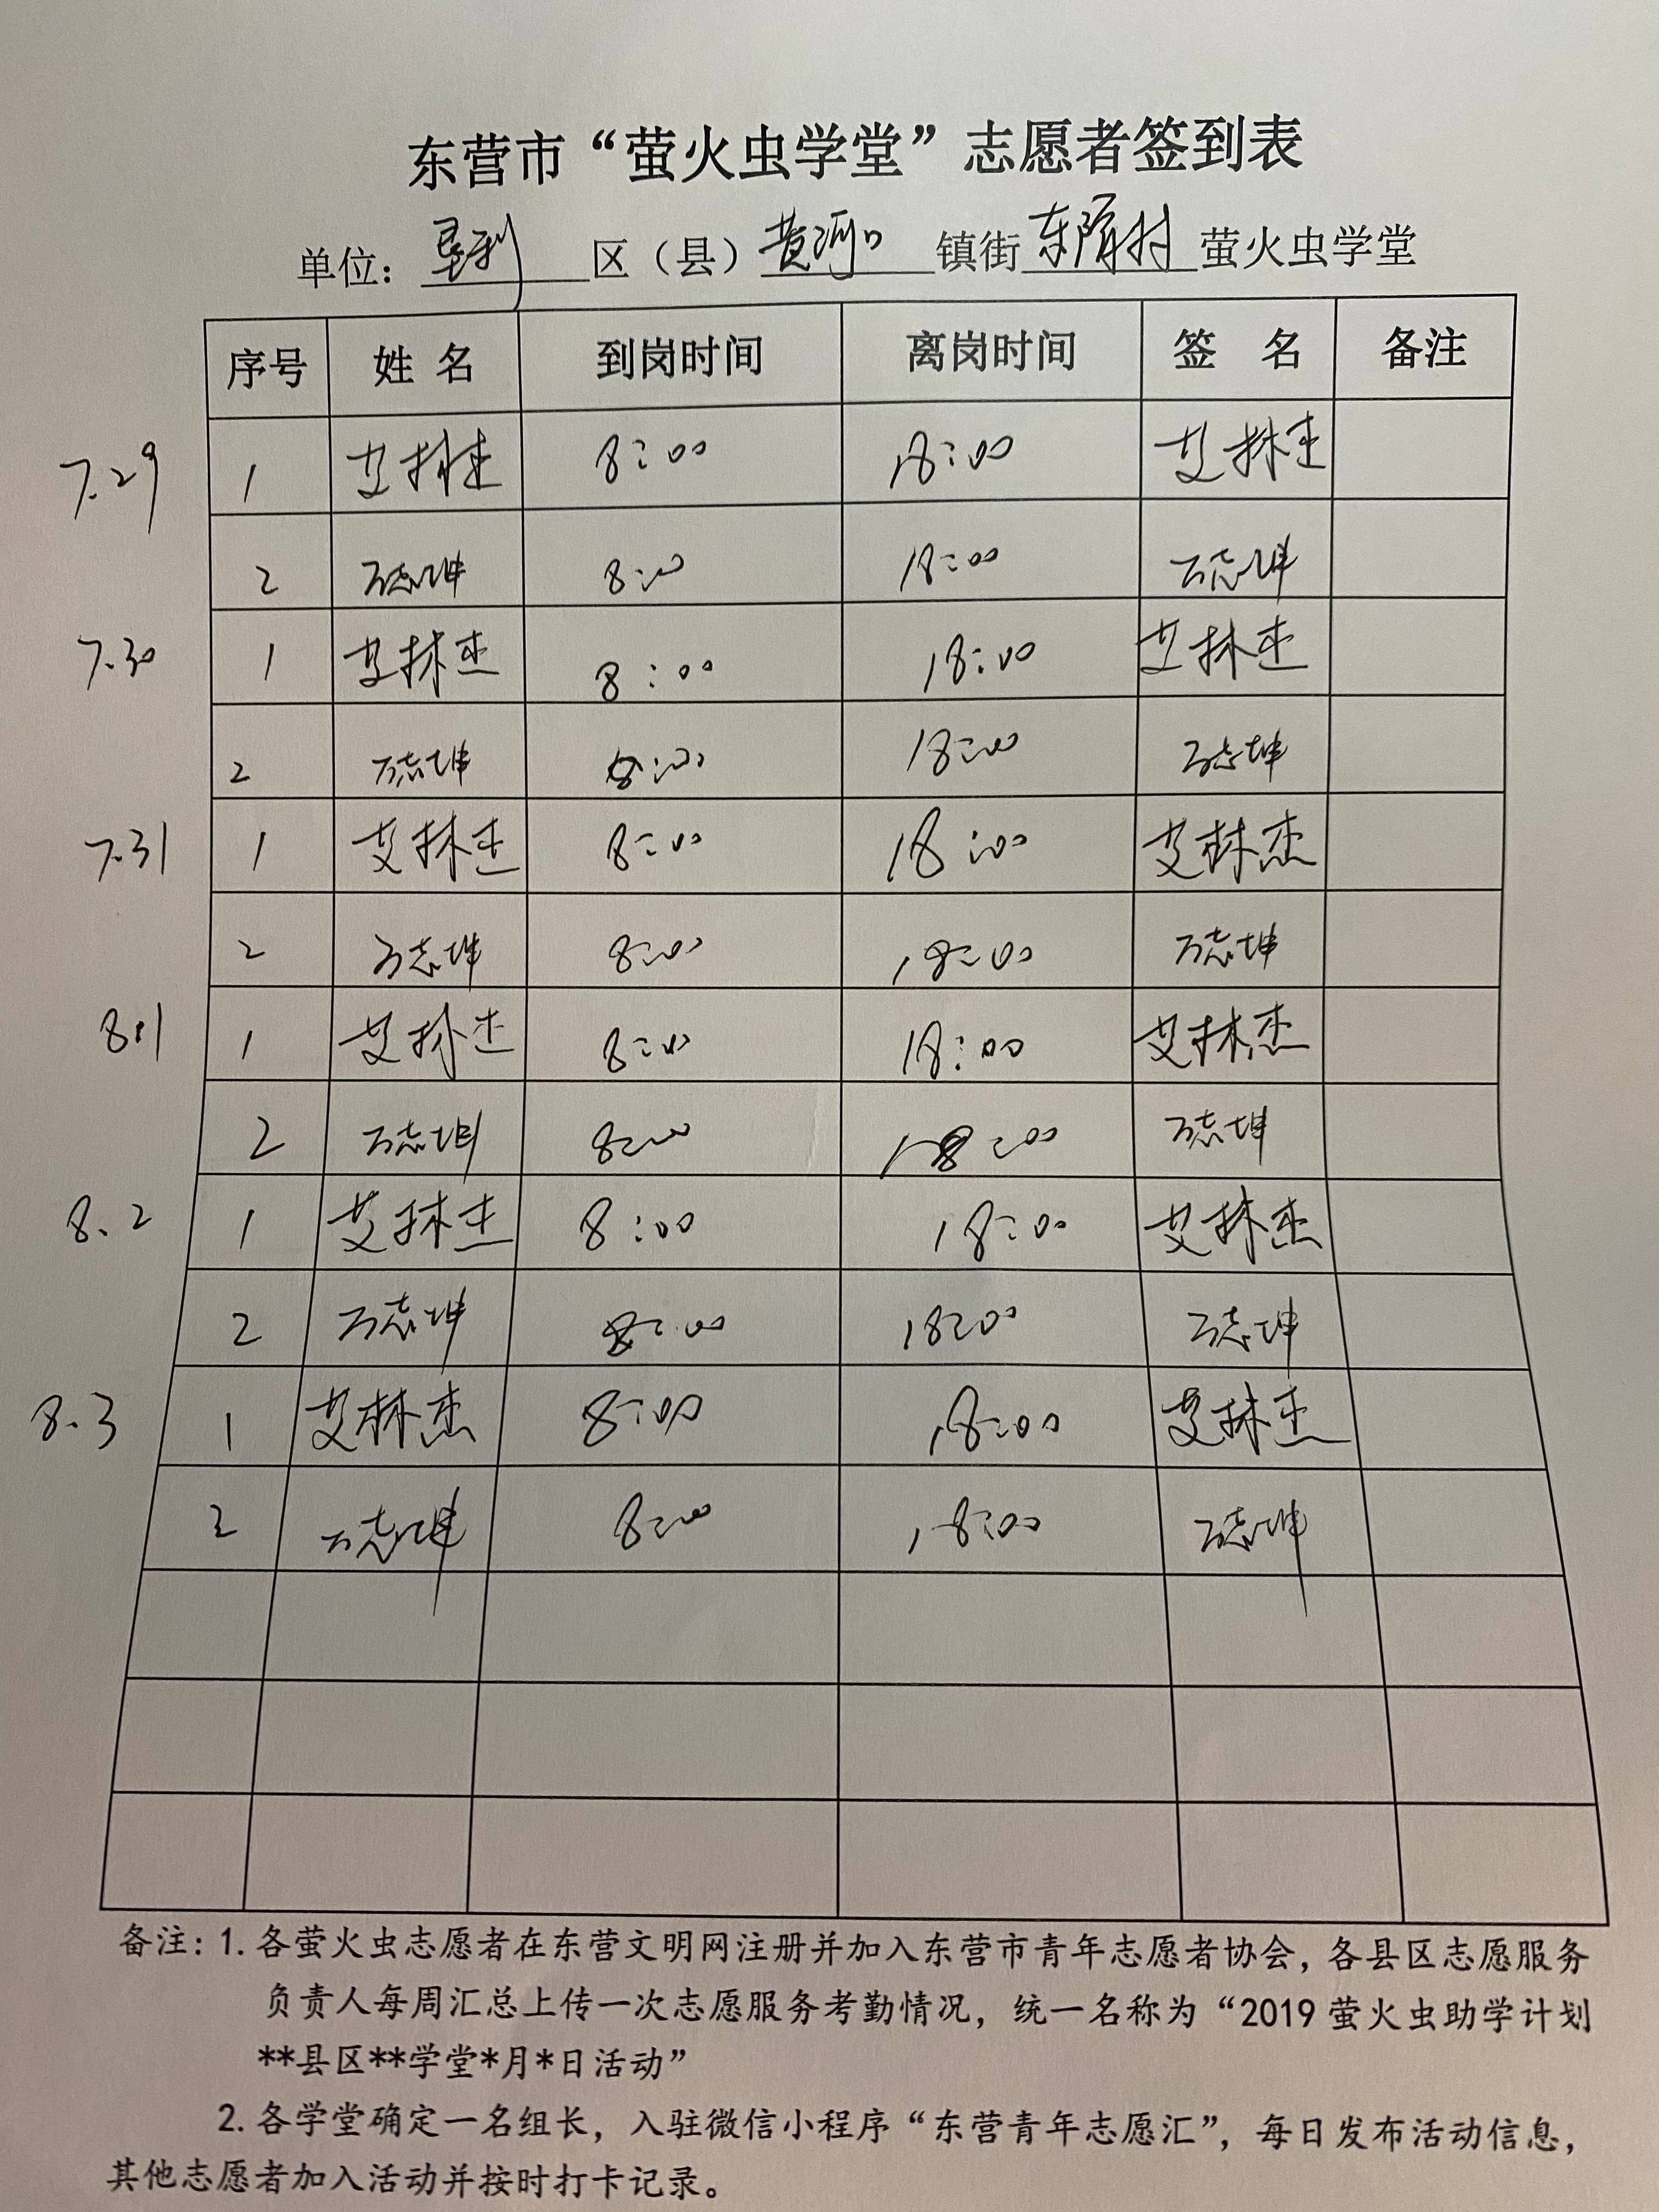 东营市“萤火虫学堂”志愿者签到表
单位：垦利 区（县）黄河口 镇街 东隋村 萤火虫学堂
序号 姓 名 到岗时间 离岗时间 签 名 备注
7.29 1 艾林杰 8:00 18:00 艾林杰
2 万志坤 8:00 18:00 万志坤
7.30 1 艾林杰 8:00 18:00 艾林杰
2 万志坤 8:00 18:00 万志坤
7.31 1 艾林杰 8:00 18:00 艾林杰
2 万志坤 8:00 18:00 万志坤
8.1 1 艾林杰 8:00 18:00 艾林杰
2 万志坤 8:00 18:00 万志坤
8.2 1 艾林杰 8:00 18:00 艾林杰
2 万志坤 8:00 18:00 万志坤
8.3 1 艾林杰 8:00 18:00 艾林杰
2 万志坤 8:00 18:00 万志坤
备注：1.各萤火虫志愿者在东营文明网注册并加入东营市青年志愿者协会，各县区志愿服务
负责人每周汇总上传一次志愿服务考勤情况，统一名称为“2019萤火虫助学计划
**县区**学堂*月*日活动”
2.各学堂确定一名组长，入驻微信小程序“东营青年志愿汇”，每日发布活动信息，
其他志愿者加入活动并按时打卡记录。